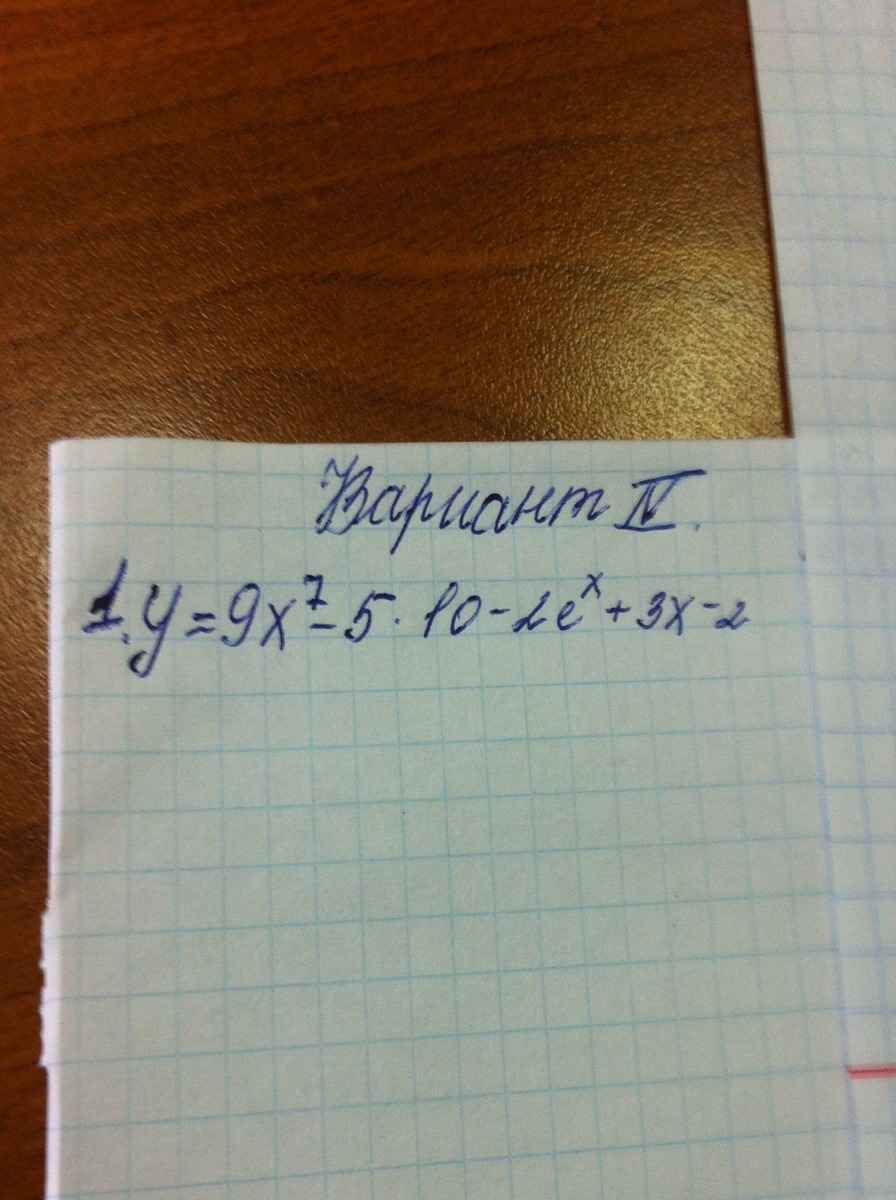 Вариант IV.
1. y = 9x⁷ - 5 · 10 - 2eˣ + 3x - 2